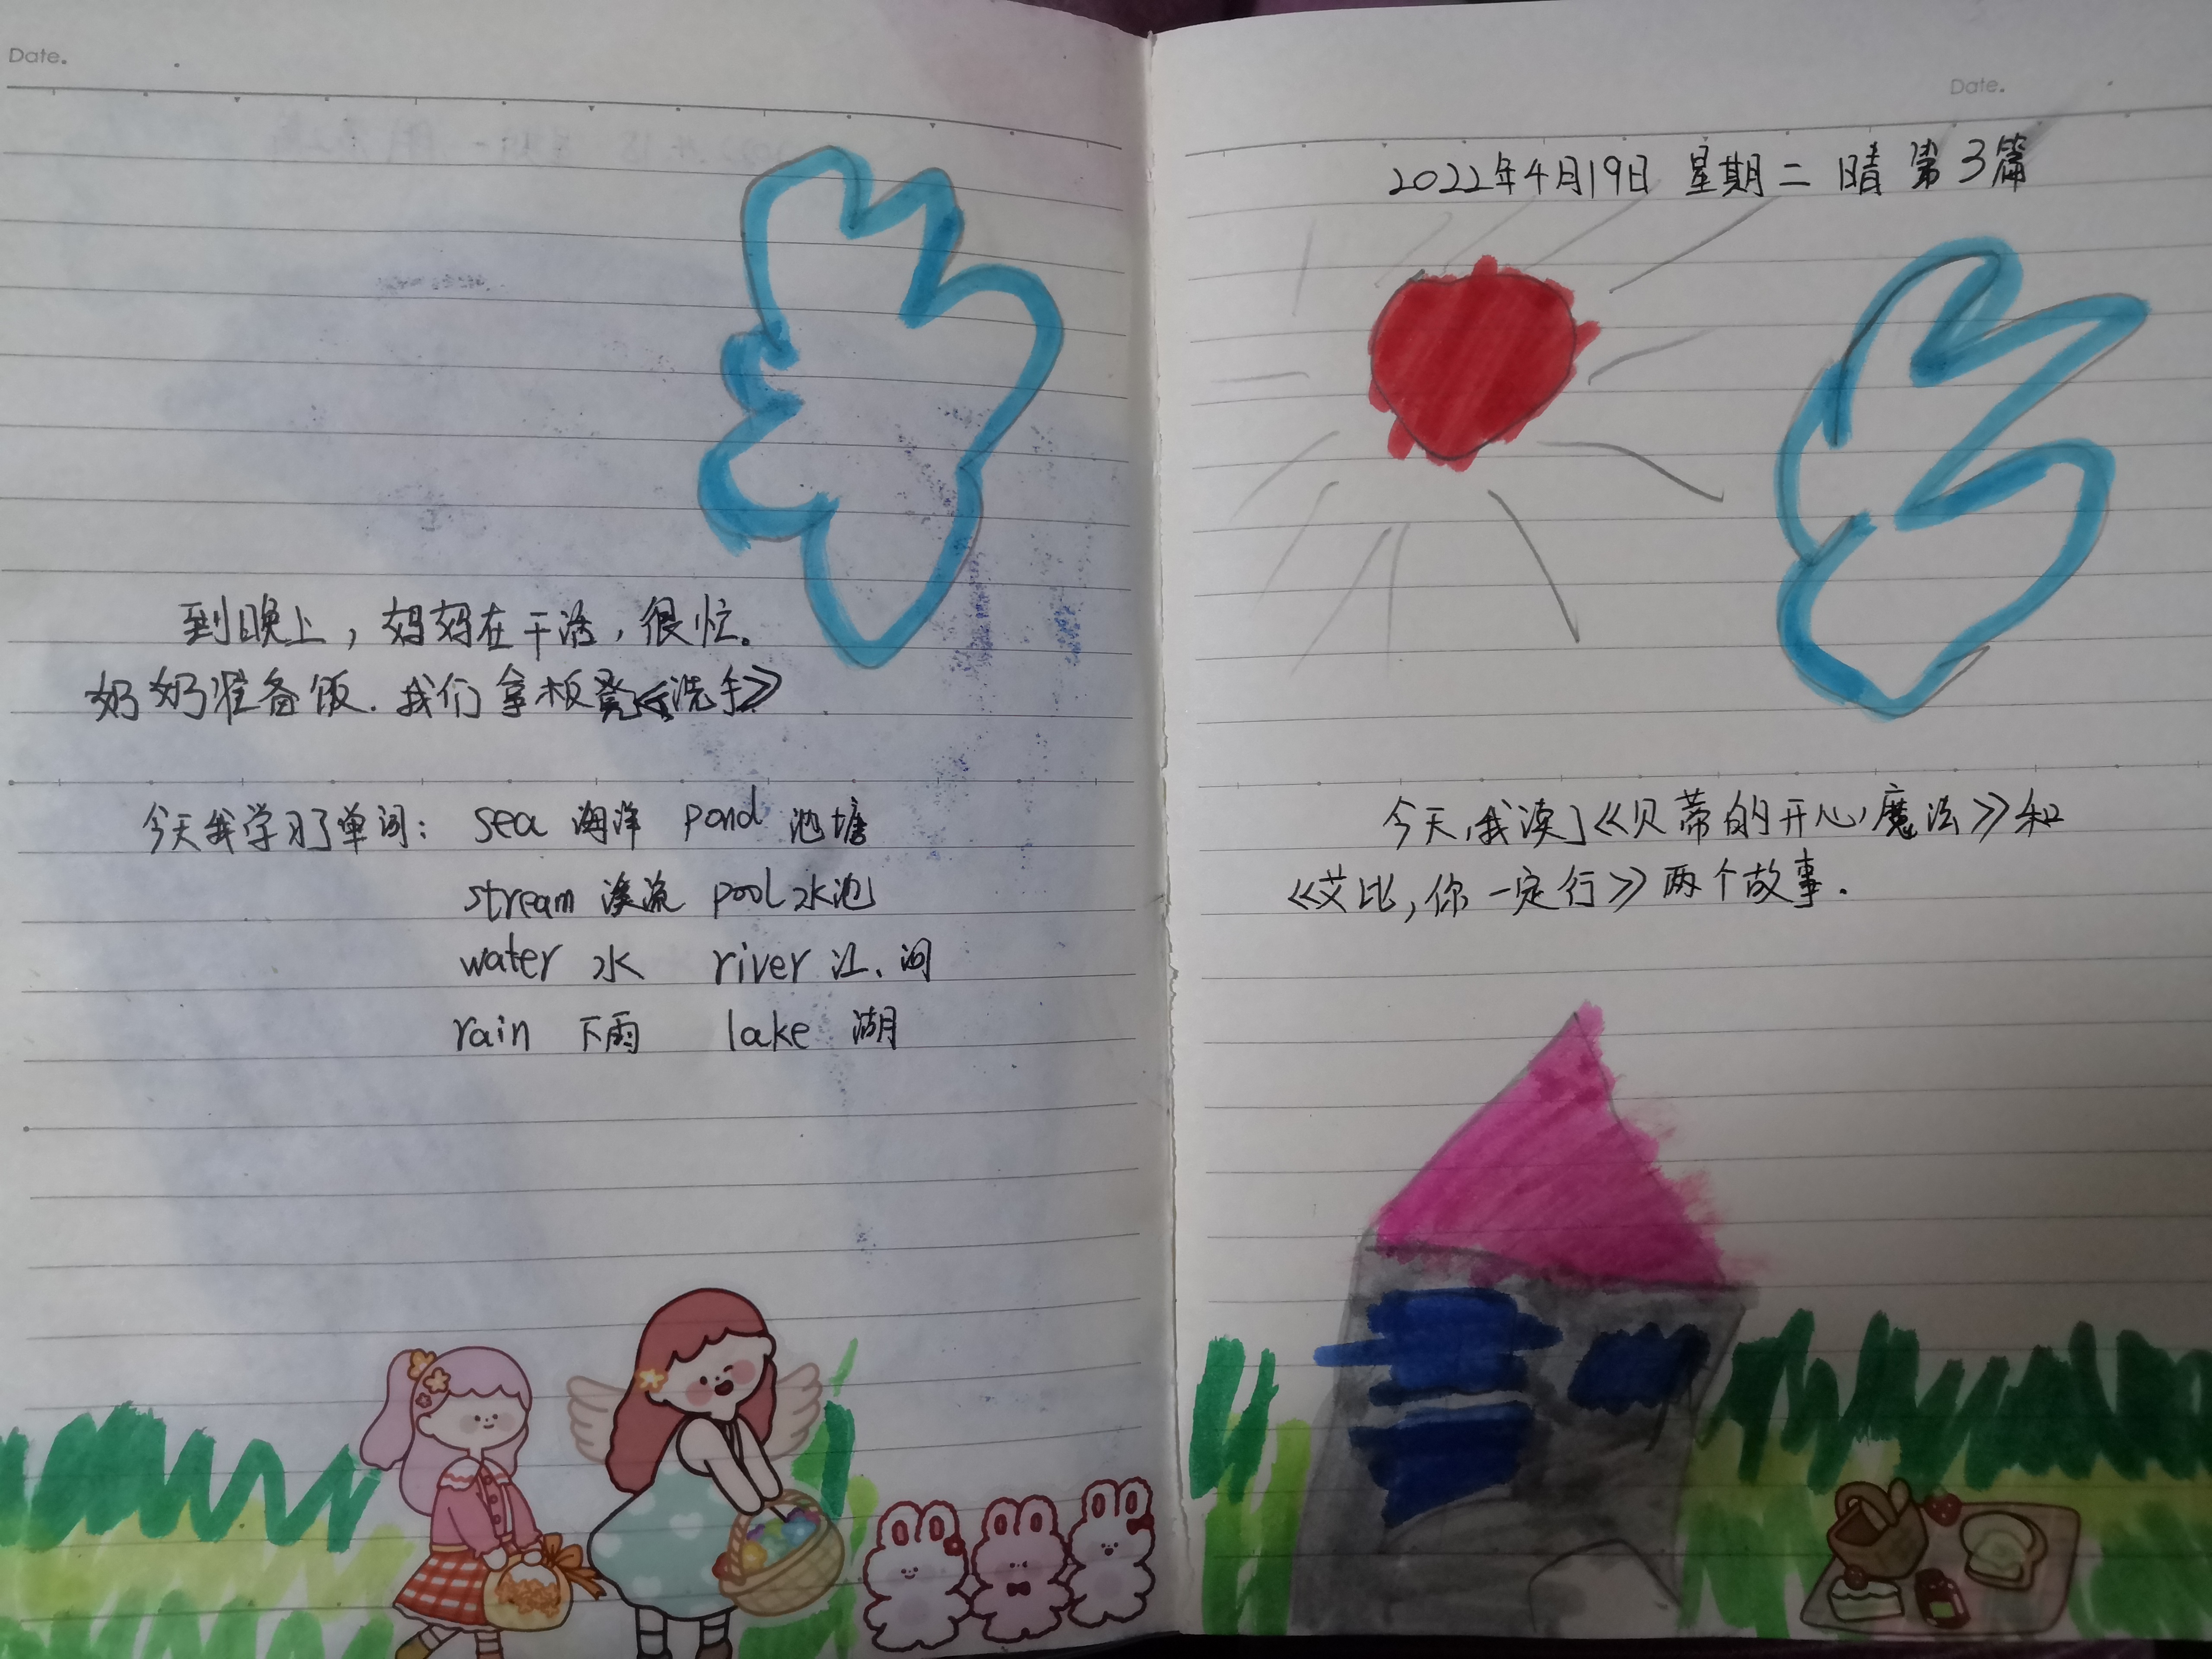 Date.
到晚上，妈妈在干活，很忙。
奶奶准备饭.我们拿板凳《洗手》
今天我学习了单词： sea 海洋 pond 池塘
stream 溪流 pool 水池
water 水 river 江、河
rain 下雨 lake 湖
Date.
2022年4月19日 星期二 晴 第3篇
今天,我读了《贝蒂的开心魔法》和
《艾比,你一定行》两个故事.